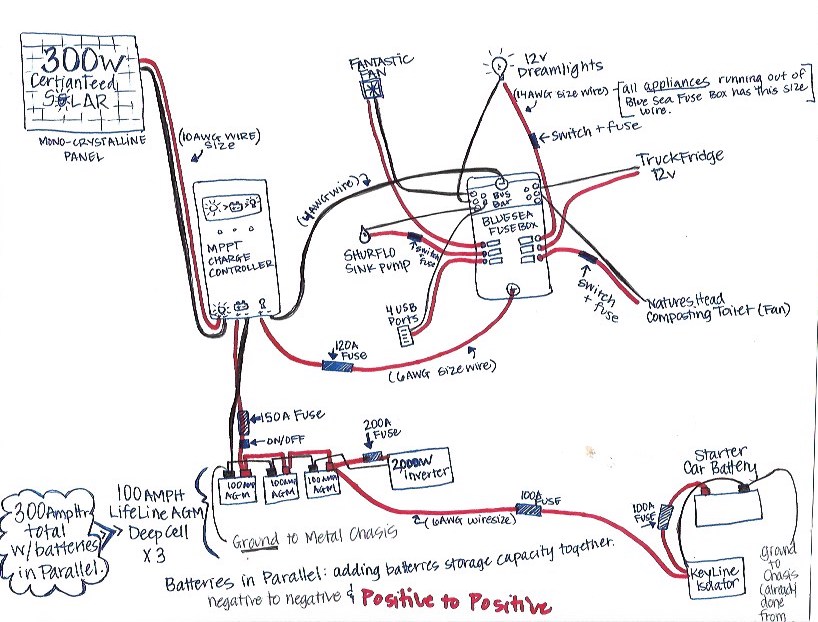 300W
CertainTeed
SOLAR
MONO-CRYSTALLINE
PANEL
(10AWG WIRE)
SIZE
MPPT
CHARGE
CONTROLLER
FANTASTIC
FAN
12v
Dreamlights
(14AWG SIZE WIRE)
all appliances running out of
Blue Sea Fuse Box has this size
wire.
switch + fuse
TruckFridge
12v
(4AWG wire)
BUS
Bar
BLUE SEA
FUSE BOX
SHURFLO
SINK PUMP
switch
+
fuse
4 USB
Ports
switch
+ fuse
Natures Head
Composting Toilet (Fan)
120A
FUSE
(6AWG size wire)
150A Fuse
ON/OFF
200A
Fuse
2000W
inverter
100AMP
AGM
100AMP
AGM
100AMP
AGM
300AmpHr
total
w/batteries
in Parallel.
100AMPH
LifeLine AGM
Deep Cell
X 3
Ground to Metal Chasis
(6AWG wiresize)
100A
FUSE
100A
FUSE
Starter
Car Battery
KeyLine
Isolator
ground
to
chasis
(already
done
from
Batteries in Parallel: adding batteries storage capacity together.
negative to negative & Positive to Positive